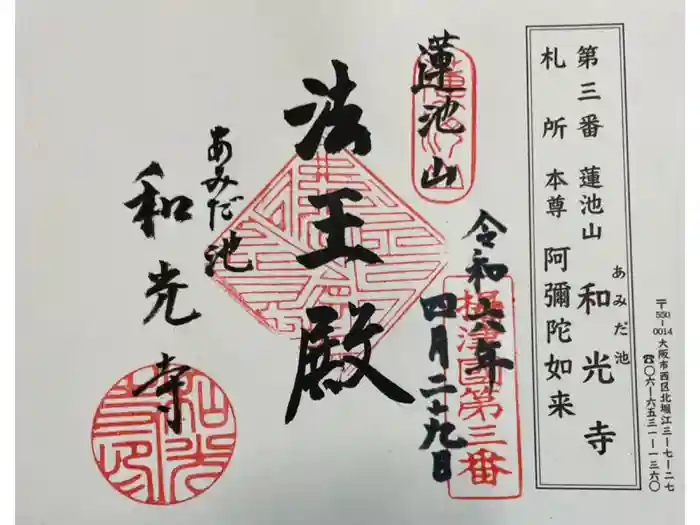 〒550-0014 大阪市西区北堀江三-七-二七
☎〇六-六五三一-一三六〇
第三番 蓮池山 あみだ池 和光寺
札所 本尊 阿彌陀如来
蓮池山
令和六年
四月二十九日
攝津国第三番
法王殿
あみだ池
和光寺